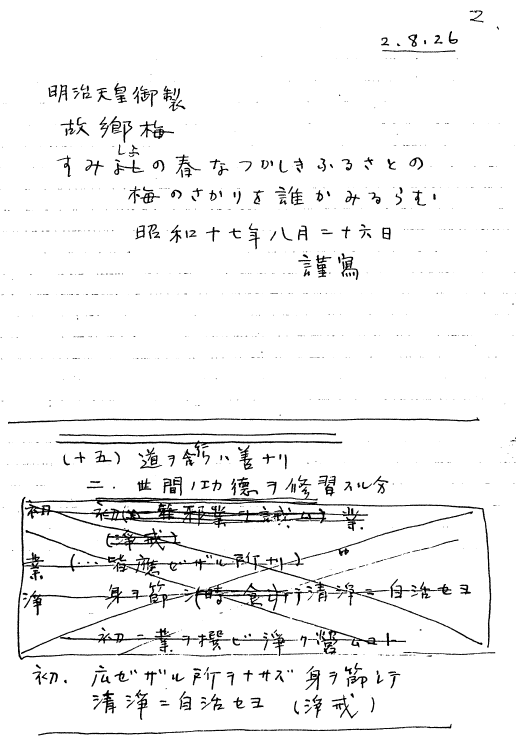 2.
2.8.26
明治天皇御製
故郷梅
すみしよの春なつかしきふるさとの
梅のさかりを誰かみるらむ
昭和十七年八月二十六日
謹寫
(十五) 道ヲ行ハ善ナリ
二. 世間ノ功德ヲ修習スル分
初 初( 邪業ヲ誡ム) 業
(浄戒)
業 (…皆應ゼザル所ナリ)
浄 身ヲ節シ(時ニ食シ)テ清浄ニ自活セヨ
初ニ業ヲ撰ビ浄ク營ムコト
初. 応ゼザル所ヲナサズ 身ヲ節シテ
清浄ニ自活セヨ (浄戒)